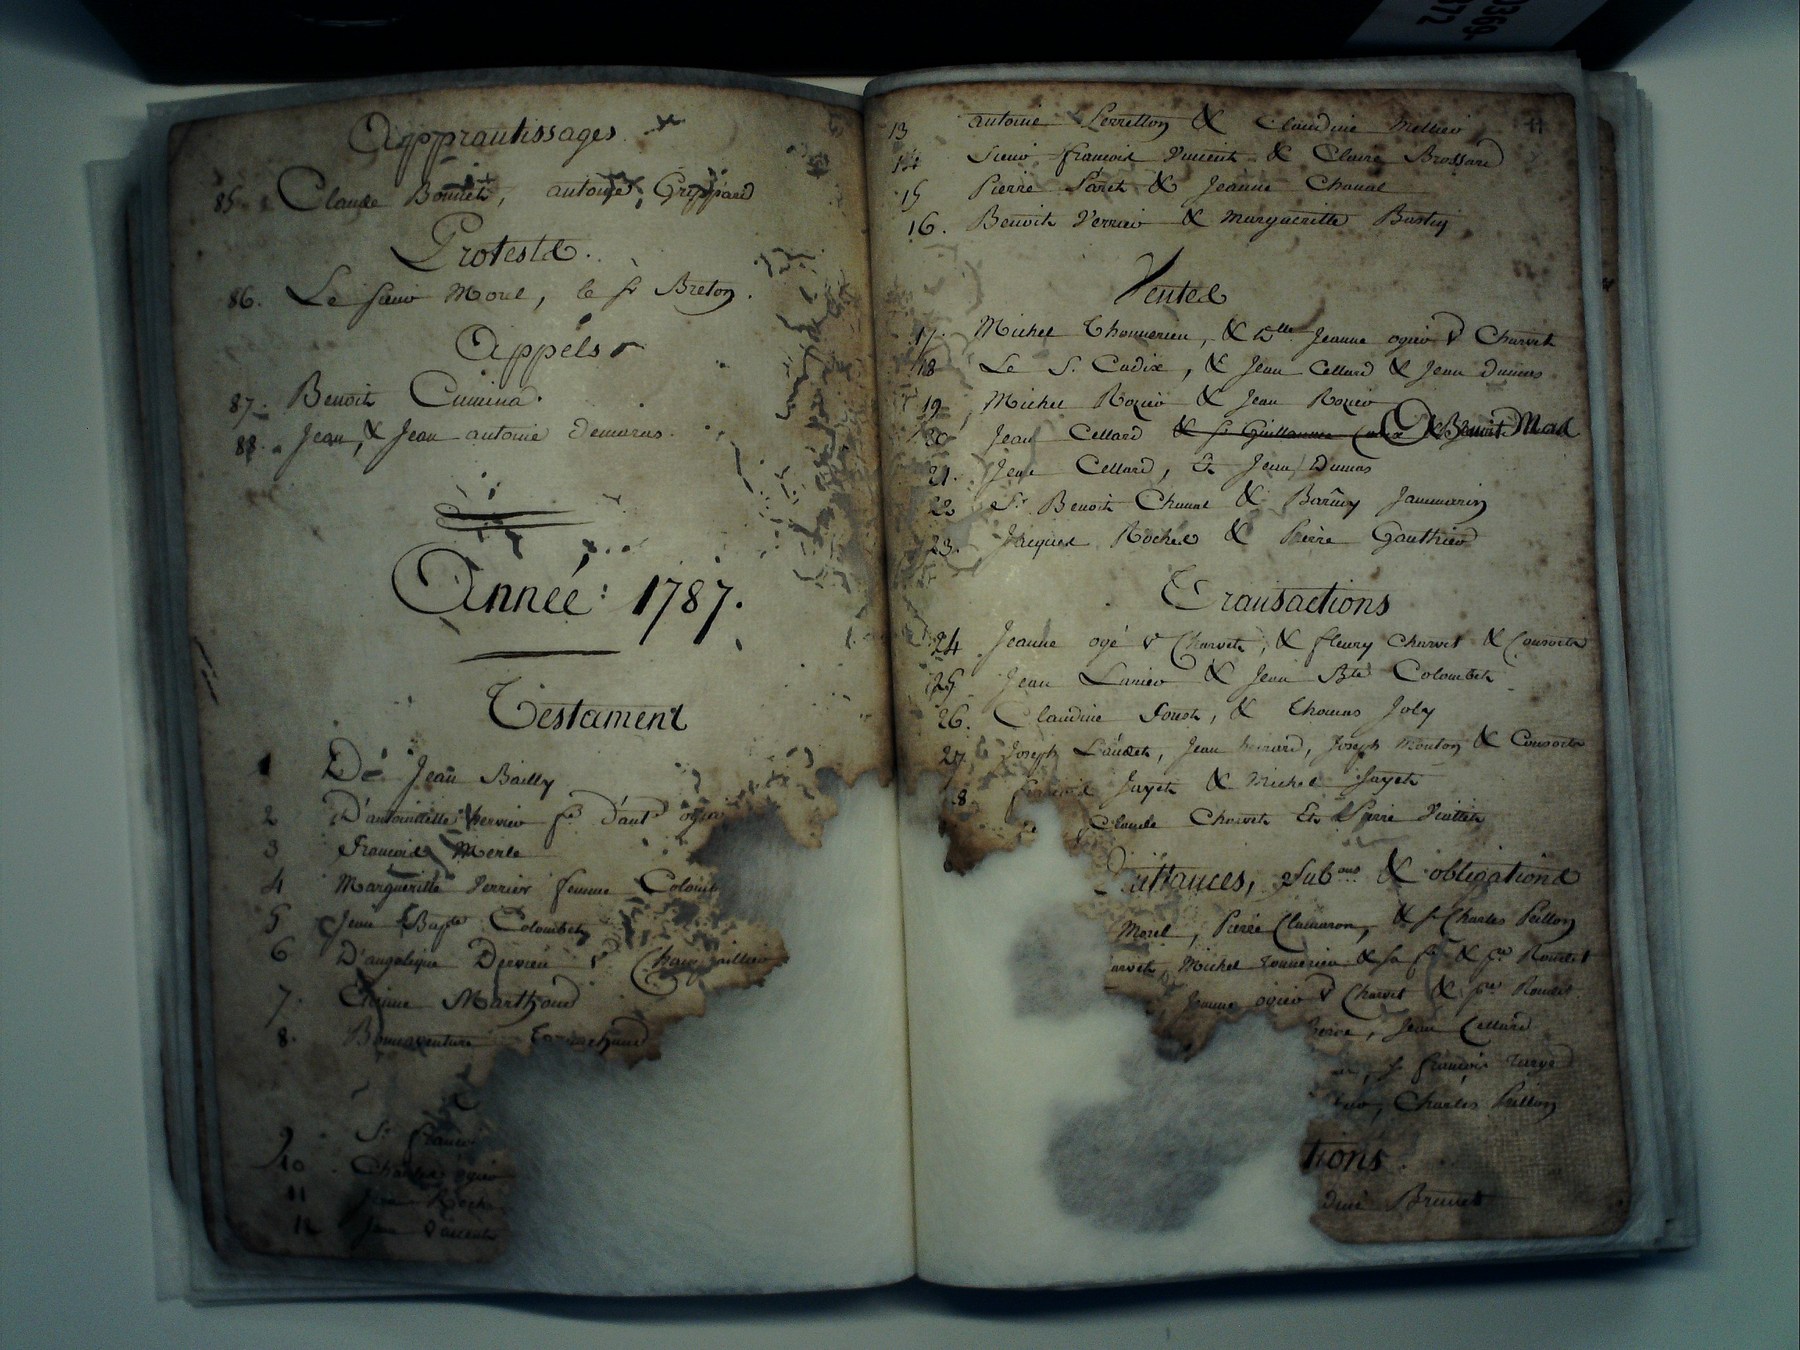 Apprantissages.
85. Claude Bonnet, antoine Grippard
Proteste.
86. Le sieur Morel, le Sr Breton.
Appels
87. Benoit Cumina.
88. Jean, & Jean antoine demaras.
Année: 1787.
Testament
1 De Jean Bailly
2 D'antoinette Vervier fe d'ant ogier
3 François Merle
4 Margueritte Verrier femme Colomb
5 Jean Bapte Colombet
6 D'angelique Dervieu Ve Chan
7. Etienne Marthoud
8. Bonnaventure
9 Sr Francoi
10 Charles ogier
11 Jean Roch
12 Jean
13 antoine Perrillon & Claudine Mellier
14 Sieur françois Vincent & Claire Brossard
15 Pierre Paret & Jeanne Chanal
16. Benoit Verrier & Margueritte Bustiy
Ventes
17. Michel Thonnerieu, & Dlle Jeanne ogier Ve Charvet
18 Le S. Cadix, & Jean Cellard & Jean dumas
19 Michel Rozier & Jean Rozier
20 Jean Cellard & Sr Guillaume & Benoit
21. Jean Cellard, Et Jean Dumas
22 Sr Benoit Chanal & Barmy Jammarin
23. Jacques Roches & Pierre Gauthier
Transactions
24 Jeanne ogé Ve Charvet, & fleury Charvet & Consorts
25 Jean Lanier & Jean Bte Colombet
26. Claudine fouet, & thomas Joly
27. Joseph Laudet, Jean, Joseph Mouton & Consorts
8 francois Jayet & Michel Jayet
Claude Charvet Et Pierre Viallet
uittances, Subons & obligations
Morel, Pierre Clamaron, & Sr Charles Peillon
arvet, Michel Tonnerieu & sa fe & Sr Roullet
Jeanne ogier Ve Charvet & Roullet
, Jean Cellard
, Sr francois
, Charles Peillon
tions.
Brunet